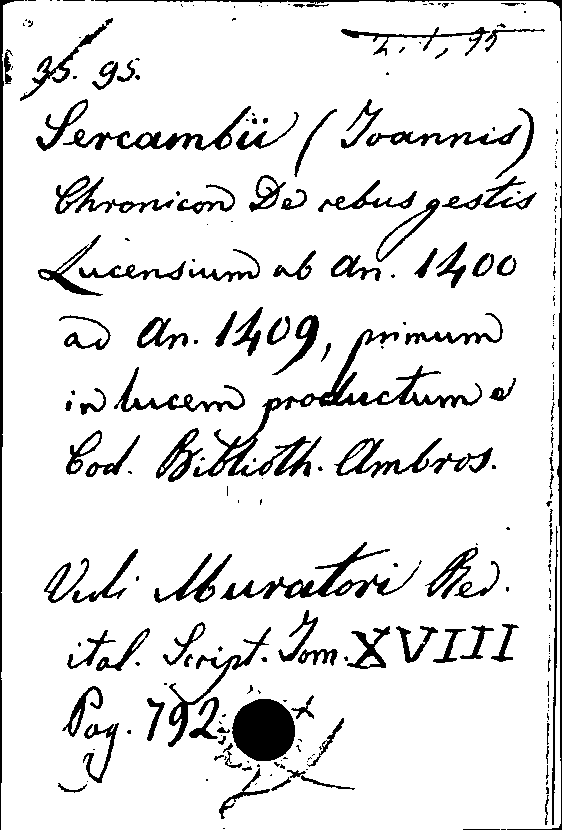 2. 1, 95
35. 95.
Sercambii (Joannis)
Chronicon De rebus gestis
Lucensium ab An. 1400
ad An. 1409, primum
in lucem productum e
Cod. Biblioth. Ambros.
Vidi Muratori Rer.
ital. Script. Tom. XVIII
Pag. 792